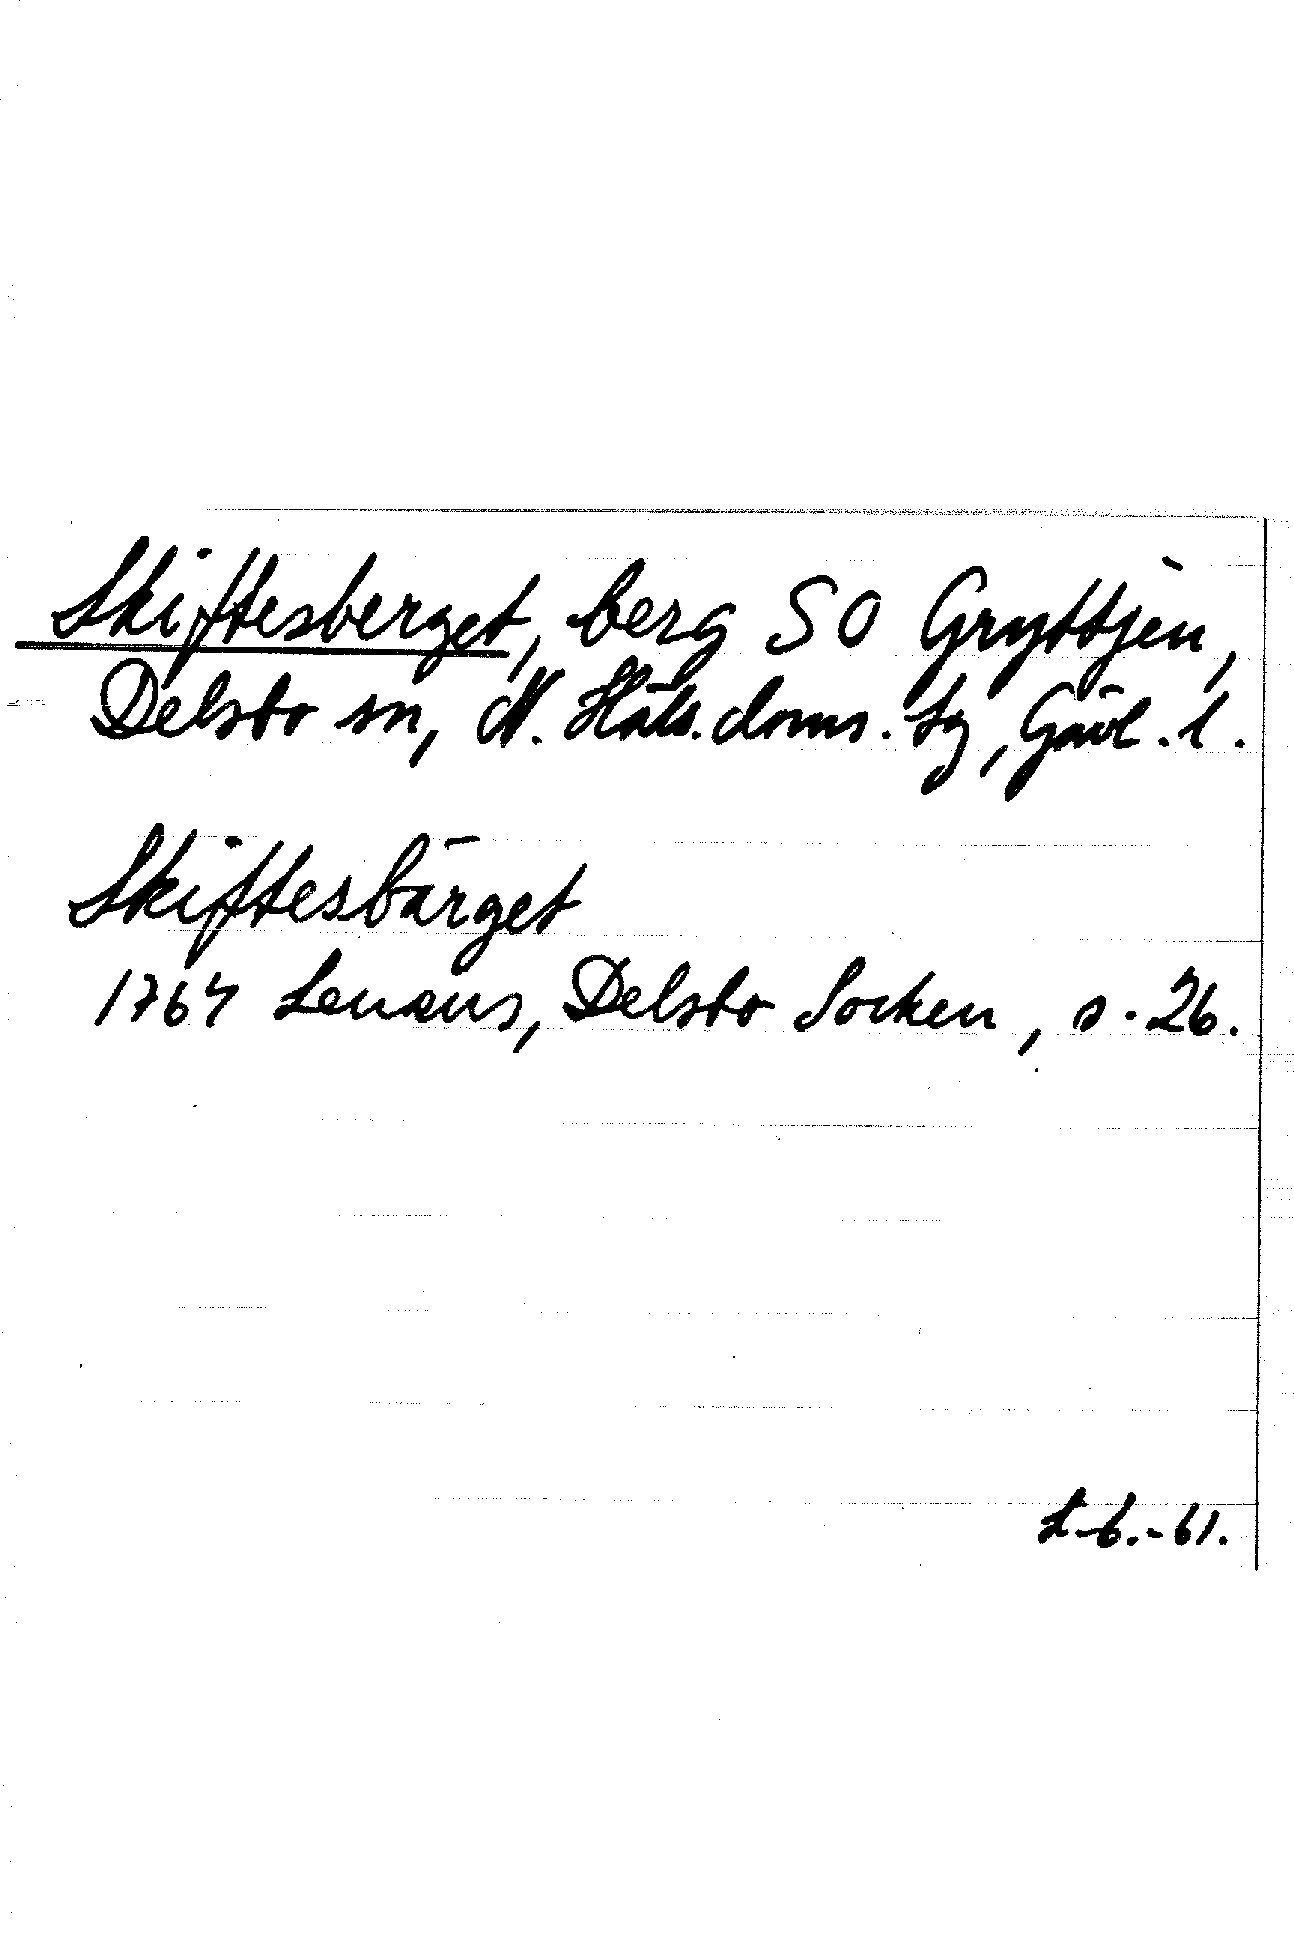 Skiftesberget, berg SO Gryttjen,
Delsbo sn, N. Häls. doms. tg, Gävl. l.
Skiftesbärget
1764 Lenæus, Delsbo Socken, s. 26.
L-b.-61.